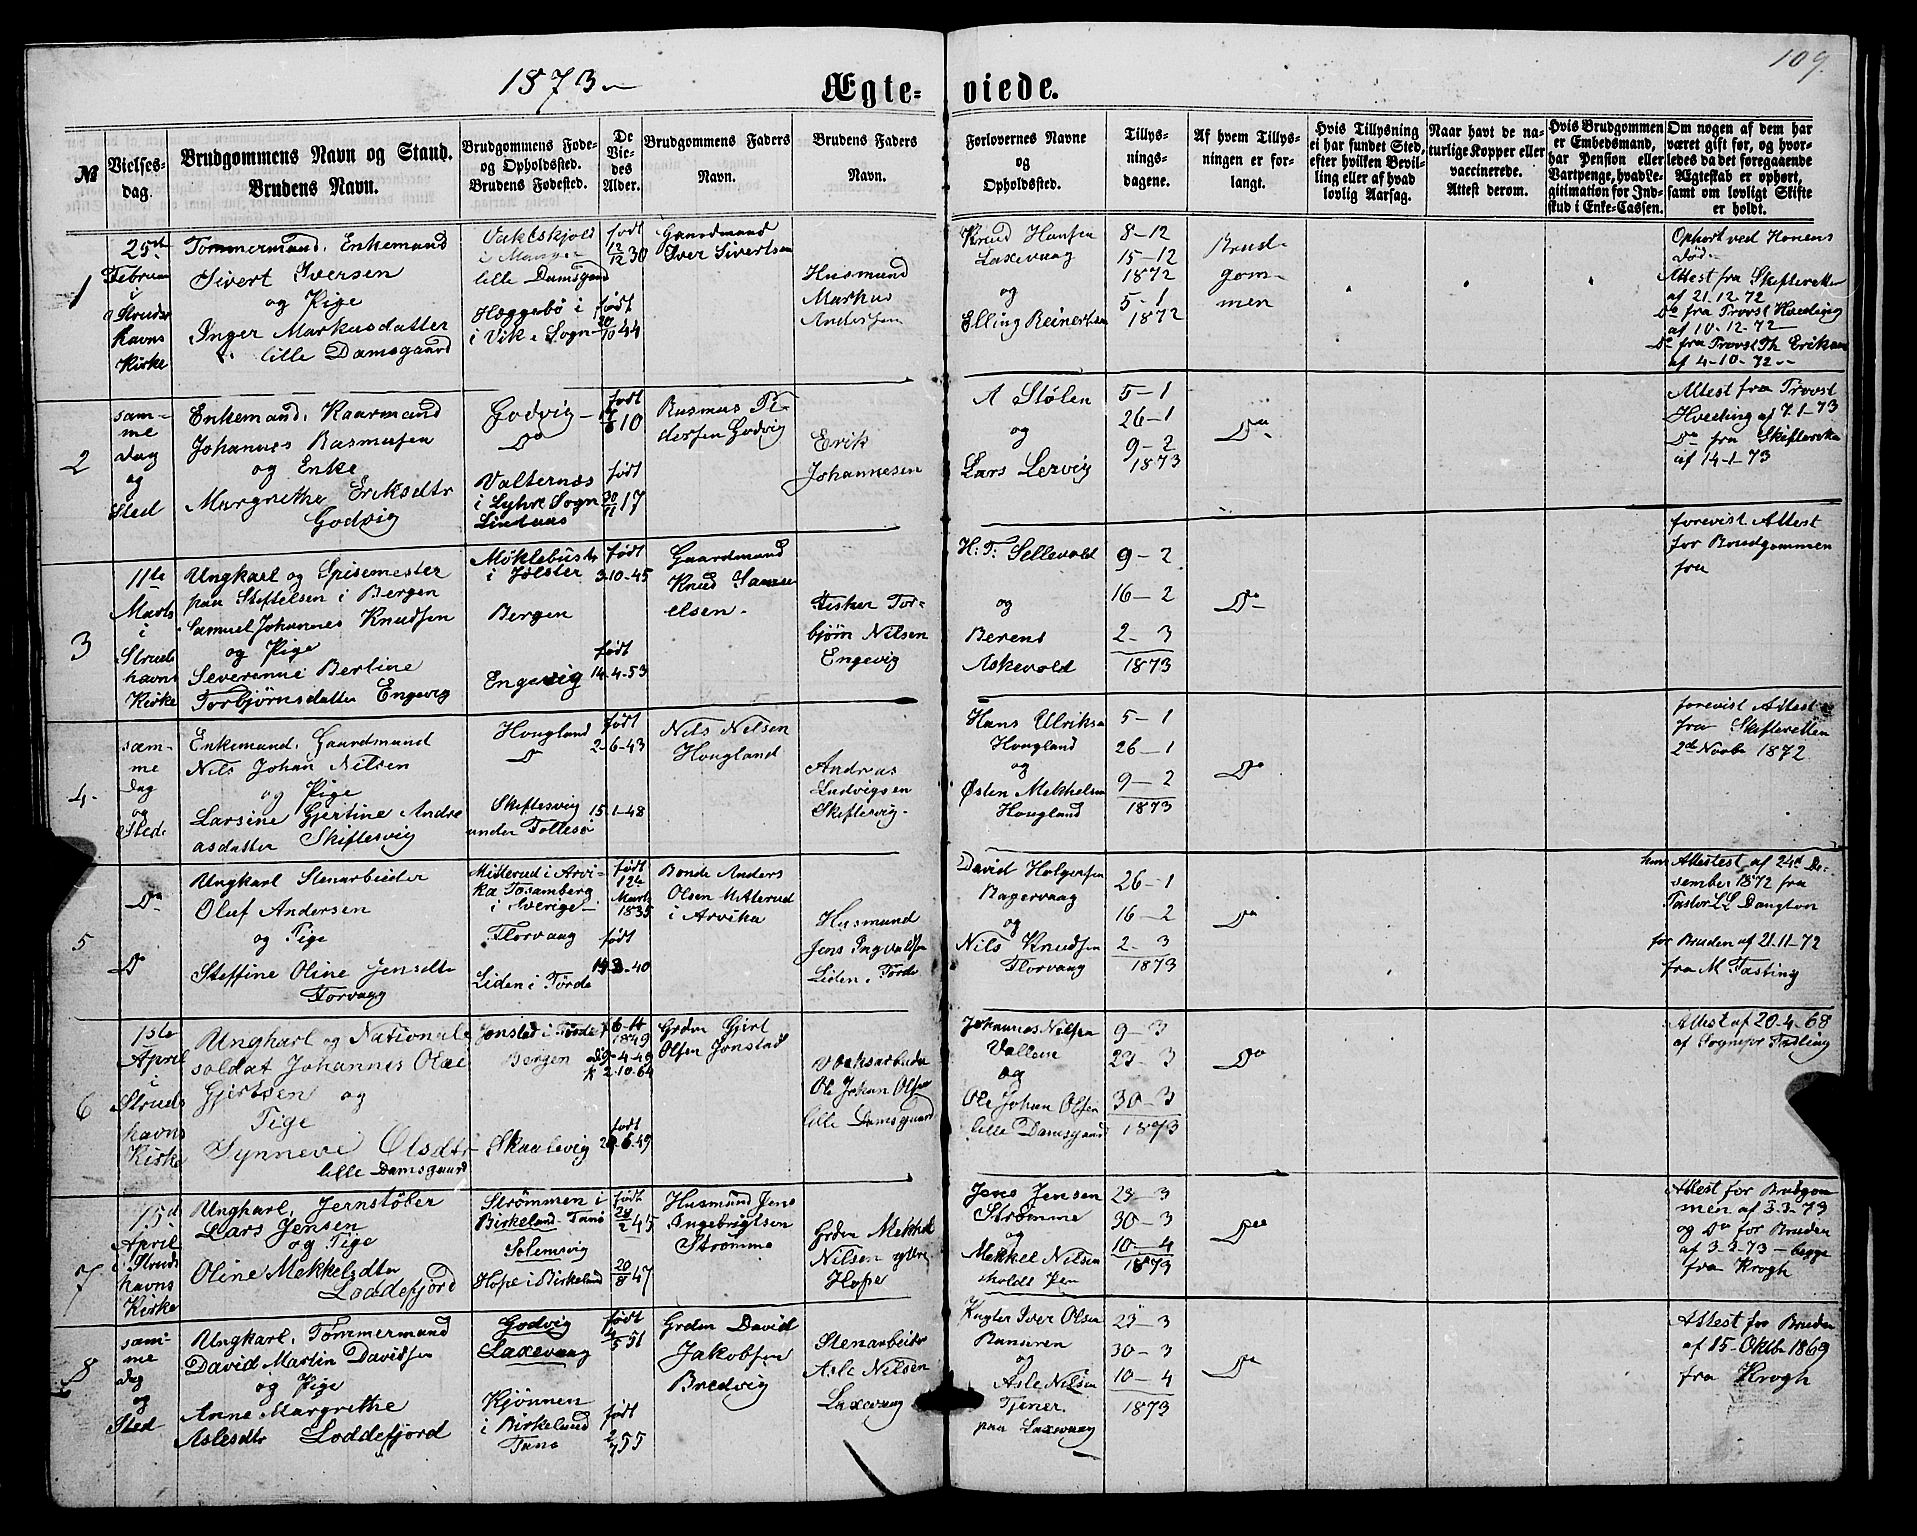 1873
Ægteviede.
109.
№
Vielsesdag.
Brudgommens Navn og Stand.
Brudens Navn.
Brudgommens Fødeog Opholdssted.
Brudens Fødested.
De Viedes Alder.
Brudgommens Faders Navn.
Brudens Faders Navn.
Forlovernes Navne og Opholdssted.
Tillysningsdagene.
Af hvem Tillysningen er forlangt.
Hvis Tillysning ei har fundet Sted, efter hvilken Bevilling eller af hvad lovlig Aarsag.
Naar havt de naturlige Kopper eller vaccinerede. Attest derom.
Hvis Brudgommen er Embedsmand, har Pension eller Vartpenge, hvad Legitimation for Indskud i Enke-Cassen.
Om nogen af dem har været gift før, og hvorledes da det foregaaende Ægteskab er ophørt, samt om lovligt Skifte er holdt.
1
25de
Februar
i
Struds
havns
Kirke
Tømmermand, Enkemand
Sivert Iversen
og Pige
Inger Markusdatter
lille Damsgaard
i Manger
lille Damsgaard
Heggebø i
i Vik i Sogn
født
12/12 30
født
20/10 44
Gaardmand
Iver Sivertsen
Husmand
Markus
Andersen
Knud Hansen
Laxevaag
og
Elling Reinertsen
8-12
15-12
1872
5-1
1872
Brudgommen
Ophørt ved Konens
Død
Attest fra Skifteretten
af 21-12-72
Do fra Provst Hvoslef
af 10-12-72
Do fra Provst Th Eriksen
af 4-10-72
2
samme
Dag
og
Sted
Enkemand, Kaarmand
Johannes Rasmussen
og Enke
Margrethe Eriksdtr
Godvig
Godvig
Do
Valternes
i Lyhre Sogn
Lindaas
født
10
født
30/11 17
Rasmus Pedersen Godvig
Erik
Johannesen
A Stølen
og
Lars Lervig
5-1
26-1
9-2
1873
Do
Attest fra Provst
af 7-1-73
Do fra Skifteretten
af 14-1-73
3
11te
Marts
i
Struds
havns
Kirke
Ungkarl og Spisemester
paa Stiftelsen i Bergen
Samuel Johannes Knudsen
og Pige
Severine Bertine
Torbjørnsdatter Engevig
Møklebust
i Jølster
Bergen
Engevig
født
3-10-45
født
14-4-53
Gaardmand
Knud Samuelsen
Fisker Torbjørn Nilsen
Engevig
H. T. Sellevold
og
Berent
Askevold
9-2
16-2
2-3
1873
Do
forevist Attest
for Brudgommen
fra
4
samme
Dag
og
Sted
Enkemand, Gaardmand
Nils Johan Nilsen
og Pige
Larsine Gjertine Andreasdatter Skiftesvig
Hougland
Do
Skiftesvig
under Follesø
født
2-6-43
15-1-48
Nils Nilsen
Hougland
Andreas
Ludvigsen
Skiftesvig
Hans Ulriksen
Hougland
og
Østen Mekkelsen
Hougland
5-1
26-1
9-2
1873
Do
forevist Attest
fra Skifteretten
2de Novbr 1872
5
Do
Do
Ungkarl Stenarbeider
Oluf Andersen
og Pige
Steffine Oline Jensdtr
Florvaag
Mitterud i Arvika Fosamberg
i Sverige
Florvaag
Liden i Førde
født
12te
Marts
1835
født
19-3-40
Bonde Anders
Olsen Mitterud
i Arvika
Husmand
Jens Ingvaldsen
Liden, Førde
David Holgersen
Bagervaag
og
Nils Knudsen
Florvaag
26-1
16-2
2-3
1873
Do
hans Attest af 24de December 1872 fra
Pastor
for Bruden af 21-11-72
fra M Fasting
6
1ste
April
i
Struds
havns
Kirke
Ungkarl og National
soldat Johannes Olai
Gjertsen og
Pige
Synneve Olsdtr
lille Damsgaard
Jonstad i Førde
Bergen
Skaalevig
1849
2-10-64
født
6-49
Grdm Gjert
Olsen Jonstad
Ole Johan Olsen
lille Damsgaard
Johannes Nilsen
Vallem
og
Ole Johan Olsen
lille Damsgaard
9-3
23-3
30-3
1873
Do
Attest af 20-4-68
af Sognepr Fasling
7
15de
April
i Struds
havns
Kirke
Ungkarl, Jernstøber
Lars Jensen
og Pige
Oline Mekkelsdtr
Loddefjord
Strømmen i
Birkeland Fane
Solemsvig
Hope i Birkeland
født
28/2 45
20/8 47
Husmand Jens
Angebrigtsen
Strømme
Grdm Mekkel
Nilsen ytre
Hope
Jens Jensen
Strømme
og
Mekkel Nilsen
23-3
30-3
10-4
1873
Do
Attest for Brudgommen af 3-3-73
og Do for Bruden
af 3-3-73 - begge
fra Krogh
8
samme
Dag
og
Sted
Ungkarl, Tømmermand
David Martin Davidsen
og Pige
Anne Margrethe
Aslesdtr Loddefjord
Godvig
Laxevaag
Kjønnen
i Birkeland
Fane
født
14/5 51
født
2/7 55
Grdm David
Jakobsen
Bredvig
Stenarbeider
Asle Nilsen
Laxevaag
Iver Olsen
og
Asle Nilsen
Tjener
paa Laxevaag
23-3
30-3
10-4
1873
Do
Attest for Bruden
af 15-Oktbr 1869
fra Krogh